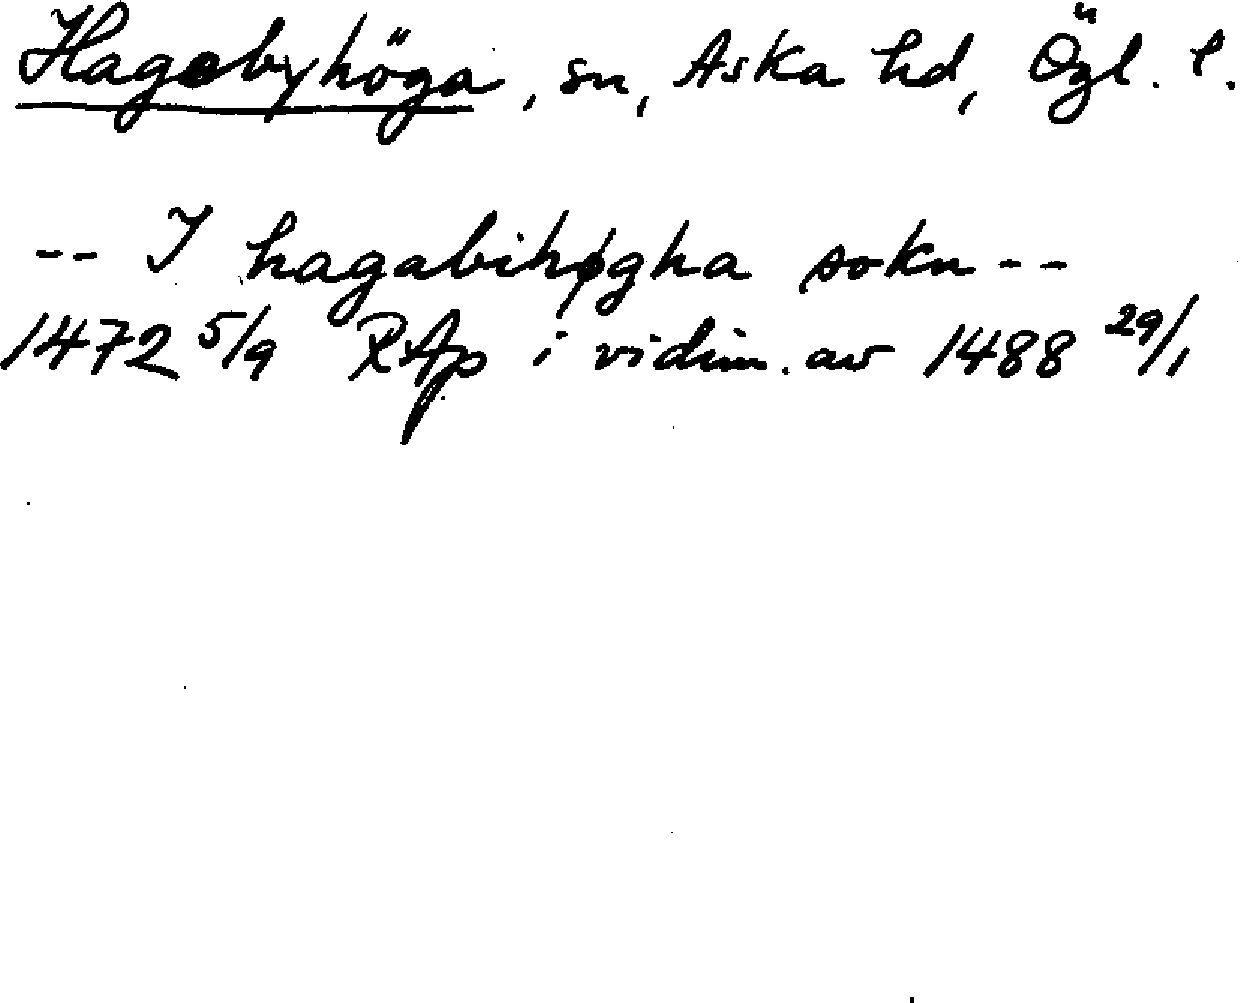 Hagebyhöga, sn, Aska hd, Ögl. l.
-- I hagabihøgha sokn --
1472 5/9 RAp i vidim. av 1488 29/1